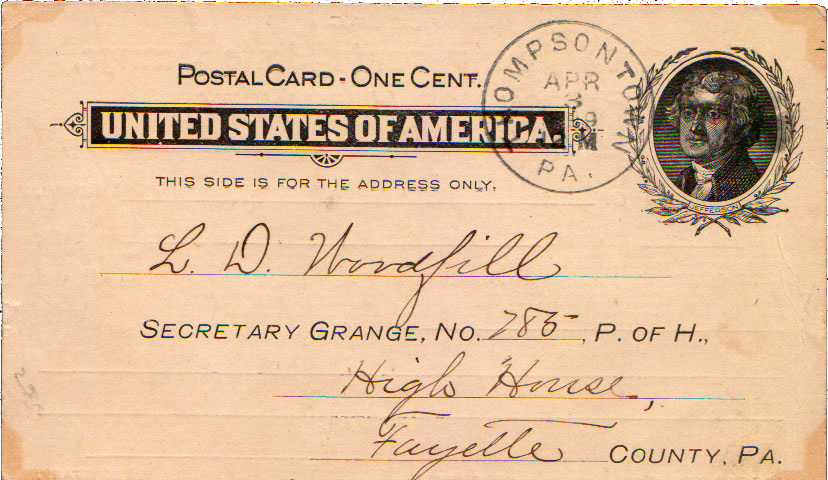 POSTAL CARD - ONE CENT.
UNITED STATES OF AMERICA.
THIS SIDE IS FOR THE ADDRESS ONLY.
THOMPSONTOWN
APR
3
PA.
JEFFERSON
L. D. Woodfill
SECRETARY GRANGE, NO. 785, P. OF H.,
High House,
Fayette COUNTY, PA.